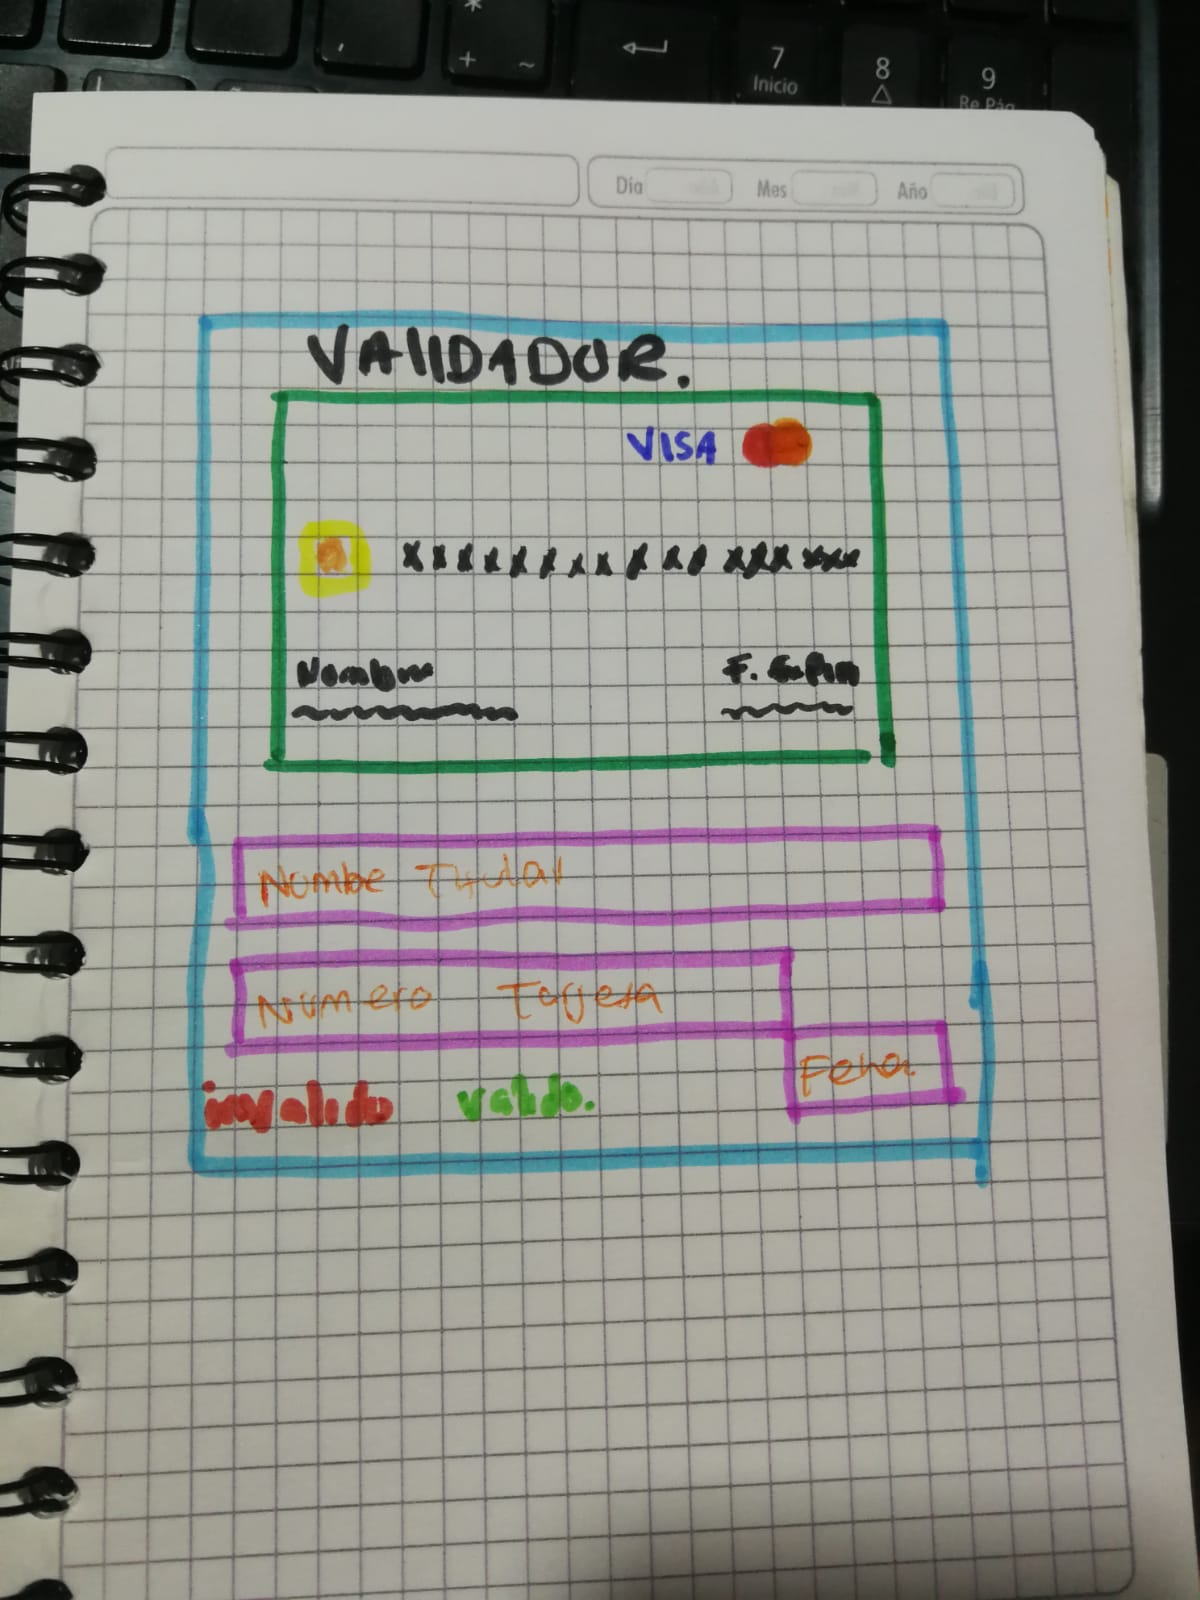 *
+ ~
7
Inicio
8
9
Re Pág
Día Mes Año
VALIDADOR.
VISA
xxxxxxxxxxxxxxxxx
Nombre
F.
Nombe Titular
Numero Tarjeta
Fecha
invalido valido.